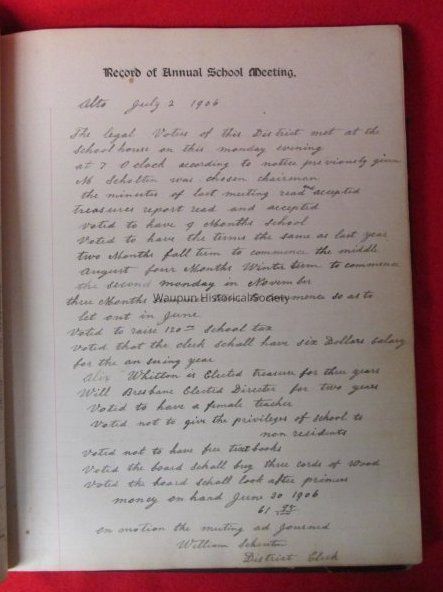 Record of Annual School Meeting.
Alto July 2 1906
The legal Voters of this District met at the
School house on this monday evening
at 7 O clock according to notice previously given
M Scholten was chosen chairman
the minutes of last meeting read and accepted
treasures report read and accepted
Voted to have 9 Months School
Voted to have the terms the same as last year
two Months fall term to commence the middle
August four Months Winter term to commence
the second monday in November
three Months commence so as to
Waupun Historical Society
let out in June
Voted to raise 120 School tax
voted that the clerk schall have six Dollars Salary
for the an suing year
Alix Whitton is Elected treasure for three years
Will Bresbane Elected Director for two years
Voted to have a female teacher
Voted not to give the privileges of school to
non residents
Voted not to have free text books
Voted the board schall buy three cords of Wood
Voted the board schall look after
money on hand June 30 1906
61
on motion the meeting ad Journed
William
District Clerk